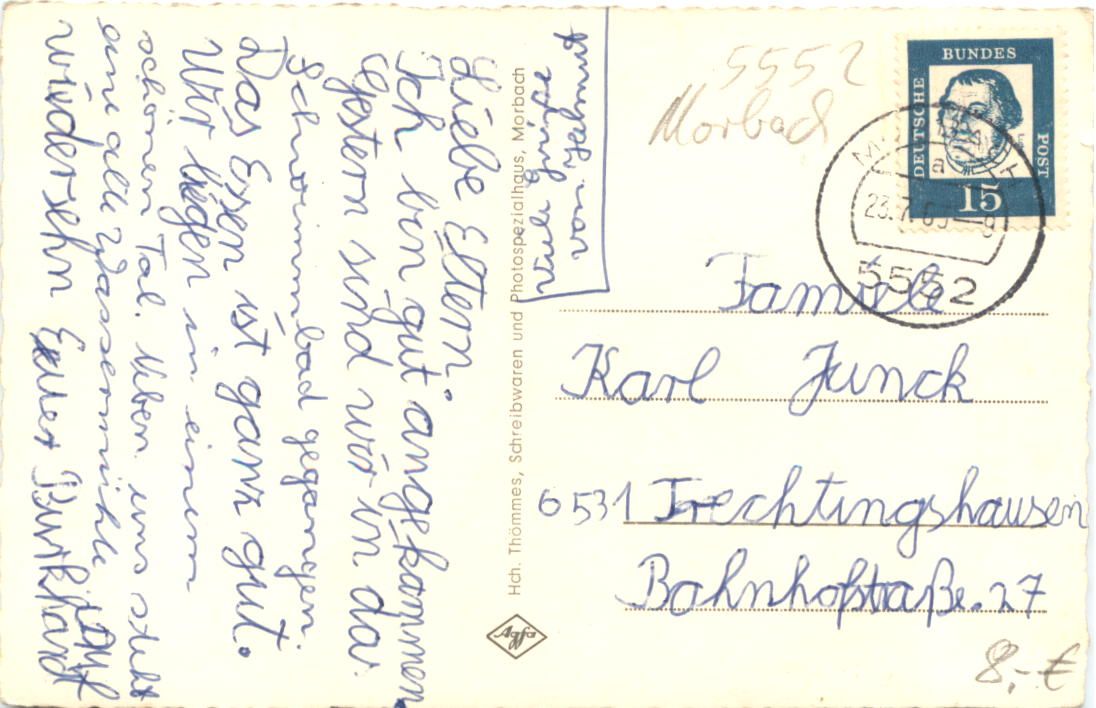 Liebe Eltern.
Ich bin gut angekommen
Gestern sind wir in das
Schwimmbad gegangen.
Das Esen ist ganz gut.
Wir liegen in einem
schönen Tal. Uben uns steht
eine alte Wassermühle. Auf
wiedersehn Euer Burkhard
Viele Grüße
von Helmut
Hch. Thömmes, Schreibwaren und Photospezialhaus, Morbach
Agfa
5552
Morbach
DEUTSCHE
BUNDES
POST
15
a
23.7.65
5552
Familie
Karl Junck
6531 Trechtingshausen
Bahnhofstraße. 27
8,- €